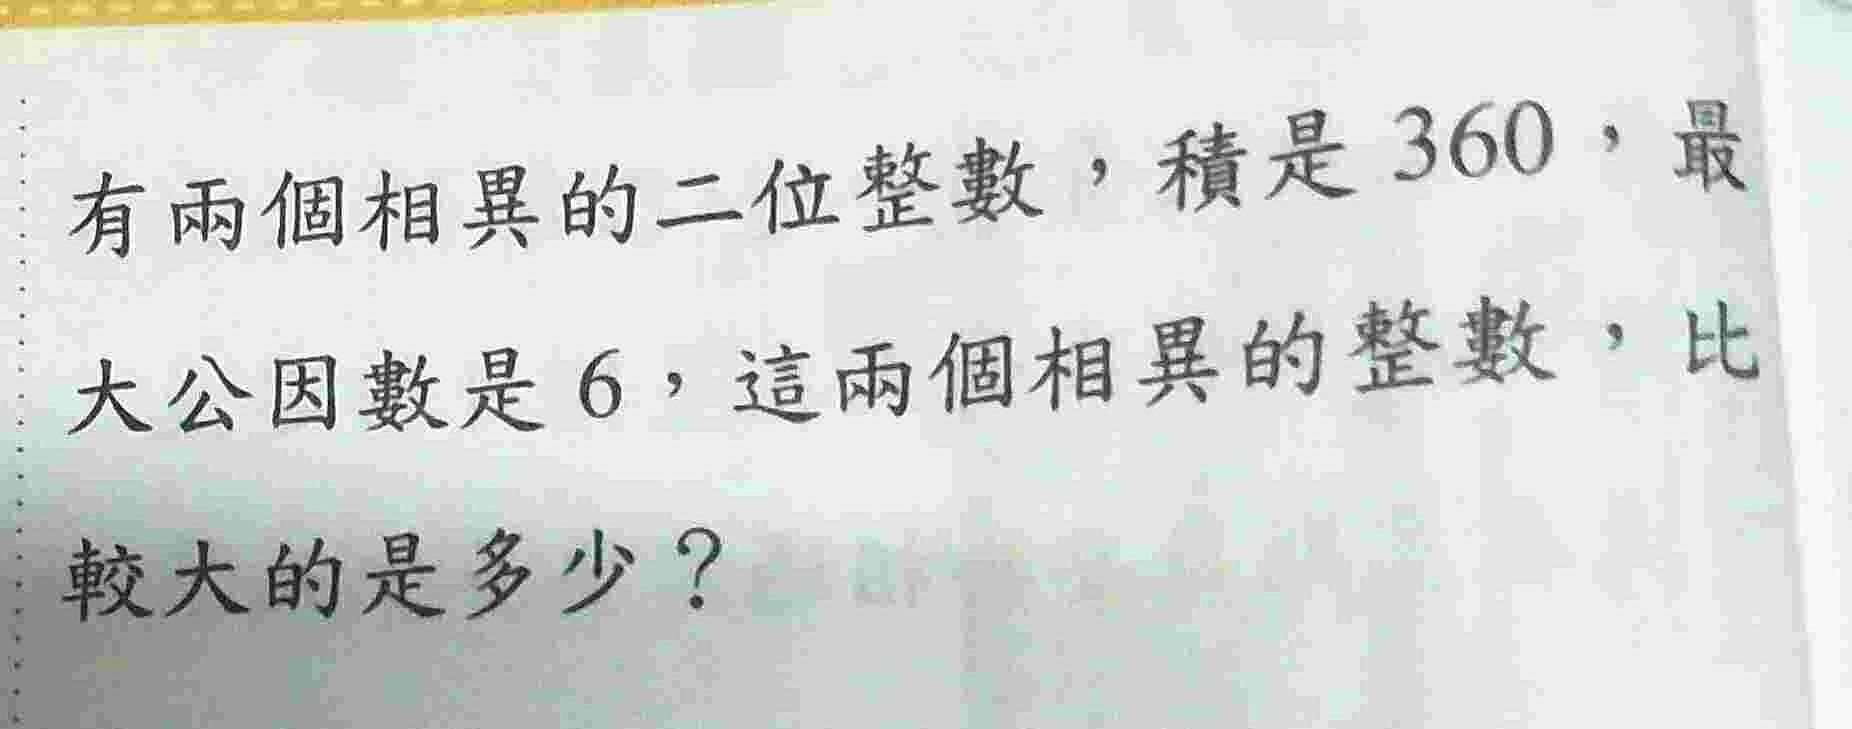 有兩個相異的二位整數，積是 360，最
大公因數是 6，這兩個相異的整數，比
較大的是多少？